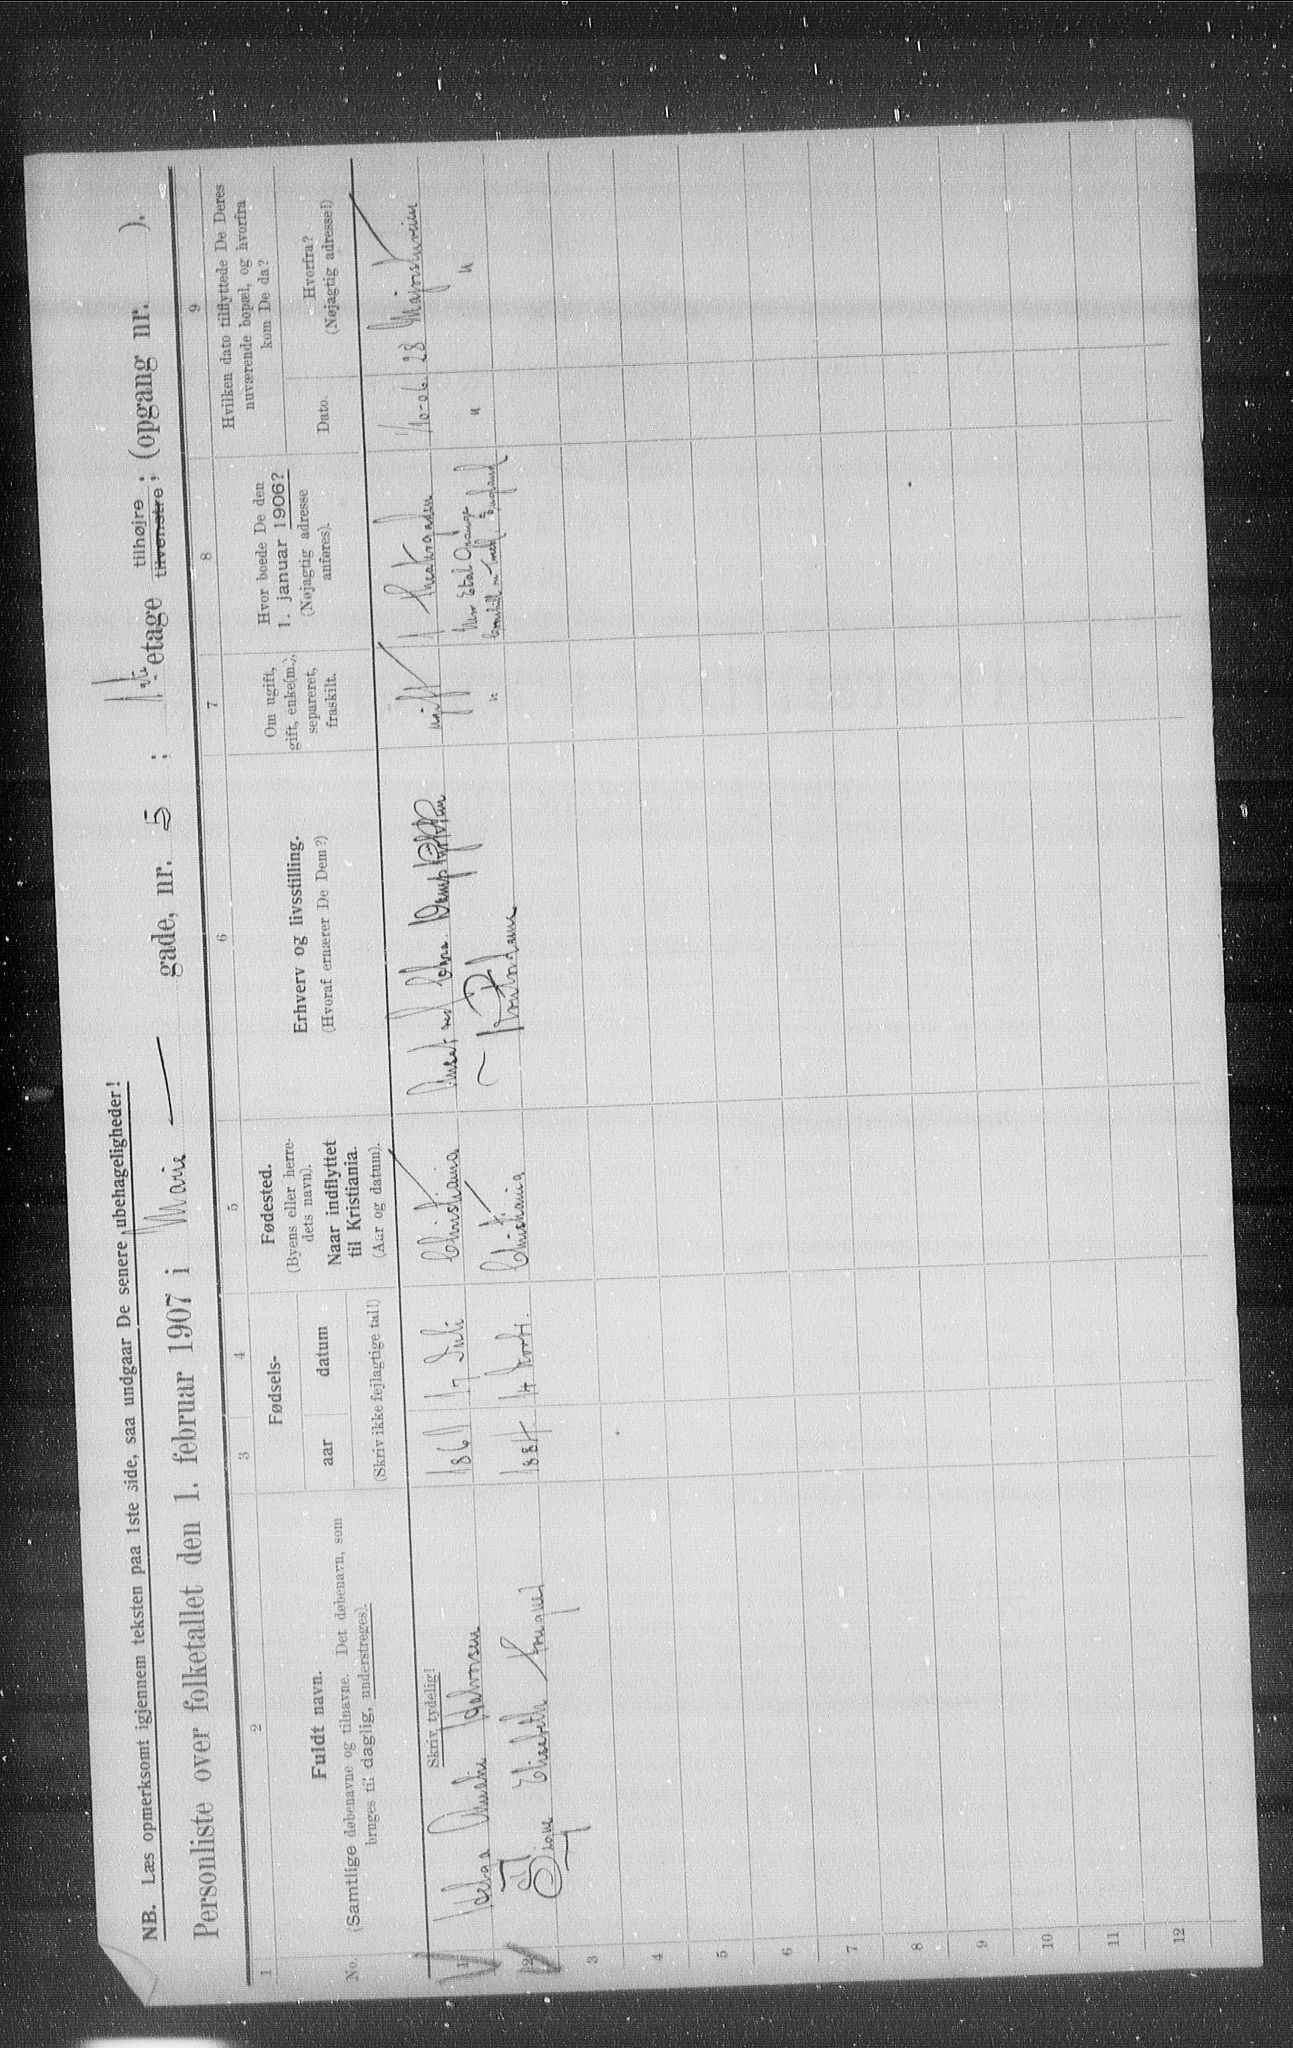 NB. Læs opmerksomt igjennem teksten paa 1ste side, saa undgaar De senere ubehageligheder!
Personliste over folketallet den 1. februar 1907 i Marie — gade, nr. 5 ; 1ste etage tilhøjre ; (opgang nr. ).
tilvenstre ;
1 2 3 4 5 6 7 8 9
No.
Fuldt navn.
(Samtlige døbenavne og tilnavne. Det døbenavn, som
bruges til daglig, understreges).
Skriv tydelig!
Fødsels-
aar
datum
(Skriv ikke fejlagtige tal!)
Fødested.
(Byens eller herre-
dets navn).
Naar indflyttet
til Kristiania.
(Aar og datum).
Erhverv og livsstilling.
(Hvoraf ernærer De Dem?)
Om ugift,
gift, enke(m.),
separeret,
fraskilt.
Hvor boede De den
1. januar 1906?
(Nøjagtig adresse
anføres).
Hvilken dato tilflyttede De Deres
nuværende bopæl, og hvorfra
kom De da?
Dato.
Hvorfra?
(Nøjagtig adresse!)
1 Helga Amalie Halvorsen 1861 17 Juli Christiania ugift Theatergaden 1/10-06. 28 Majorstuveien
2 Signe Elisabeth 1884. 14 Christiania Kontordame " England " "
3
4
5
6
7
8
9
10
11
12